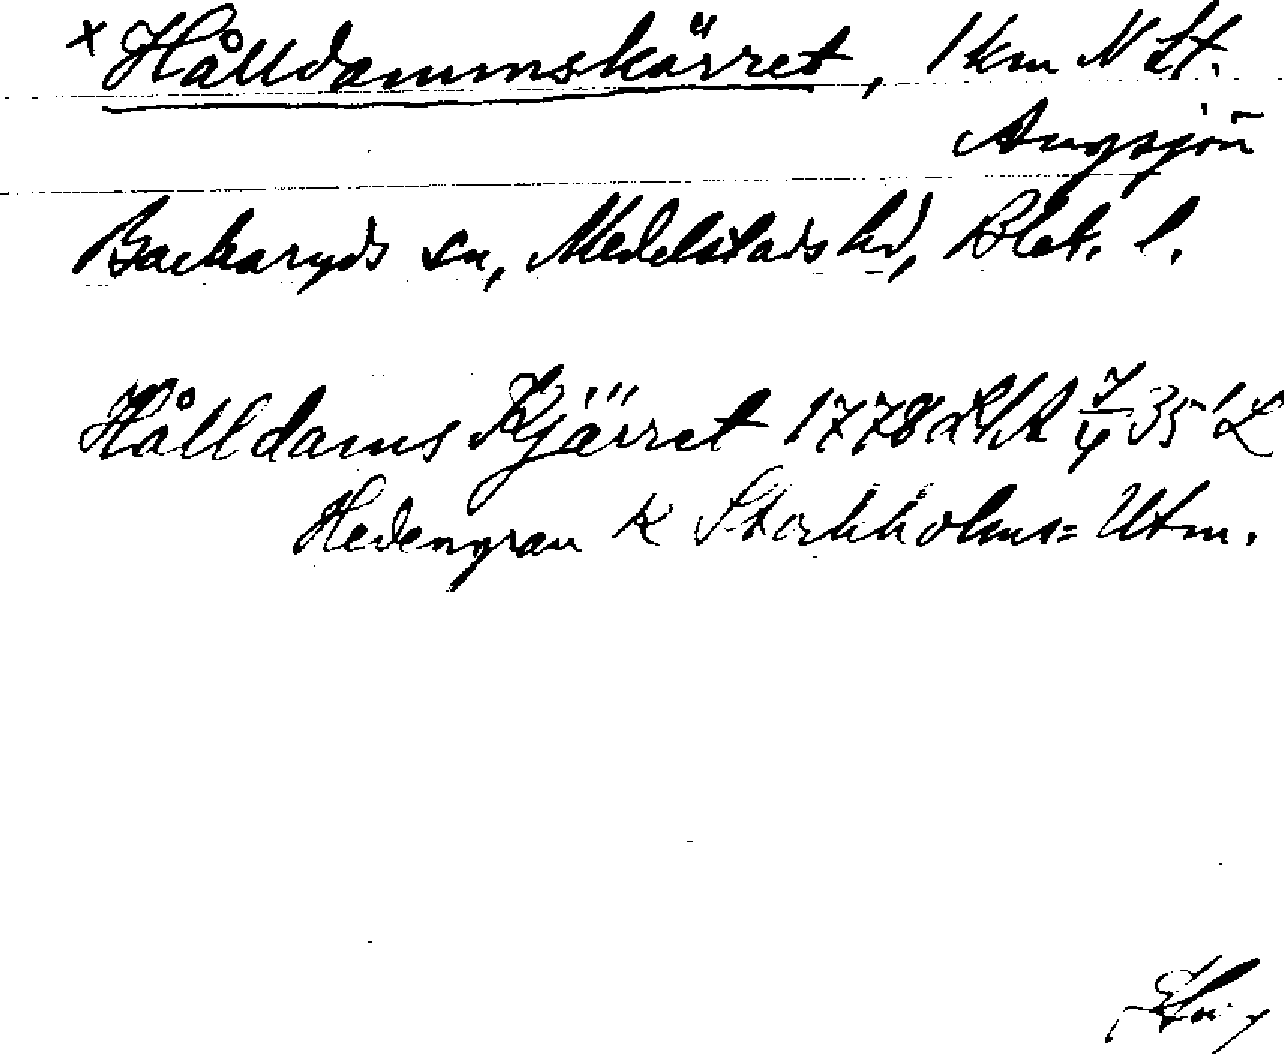 x Hålldammskärret, 1 km N St.
Angsjön
Backaryds sn, Medelstads hd, Blek. l.
Hålldams Kjärret 1778 7/4 35
Hedengran K Stockholms= Utm.